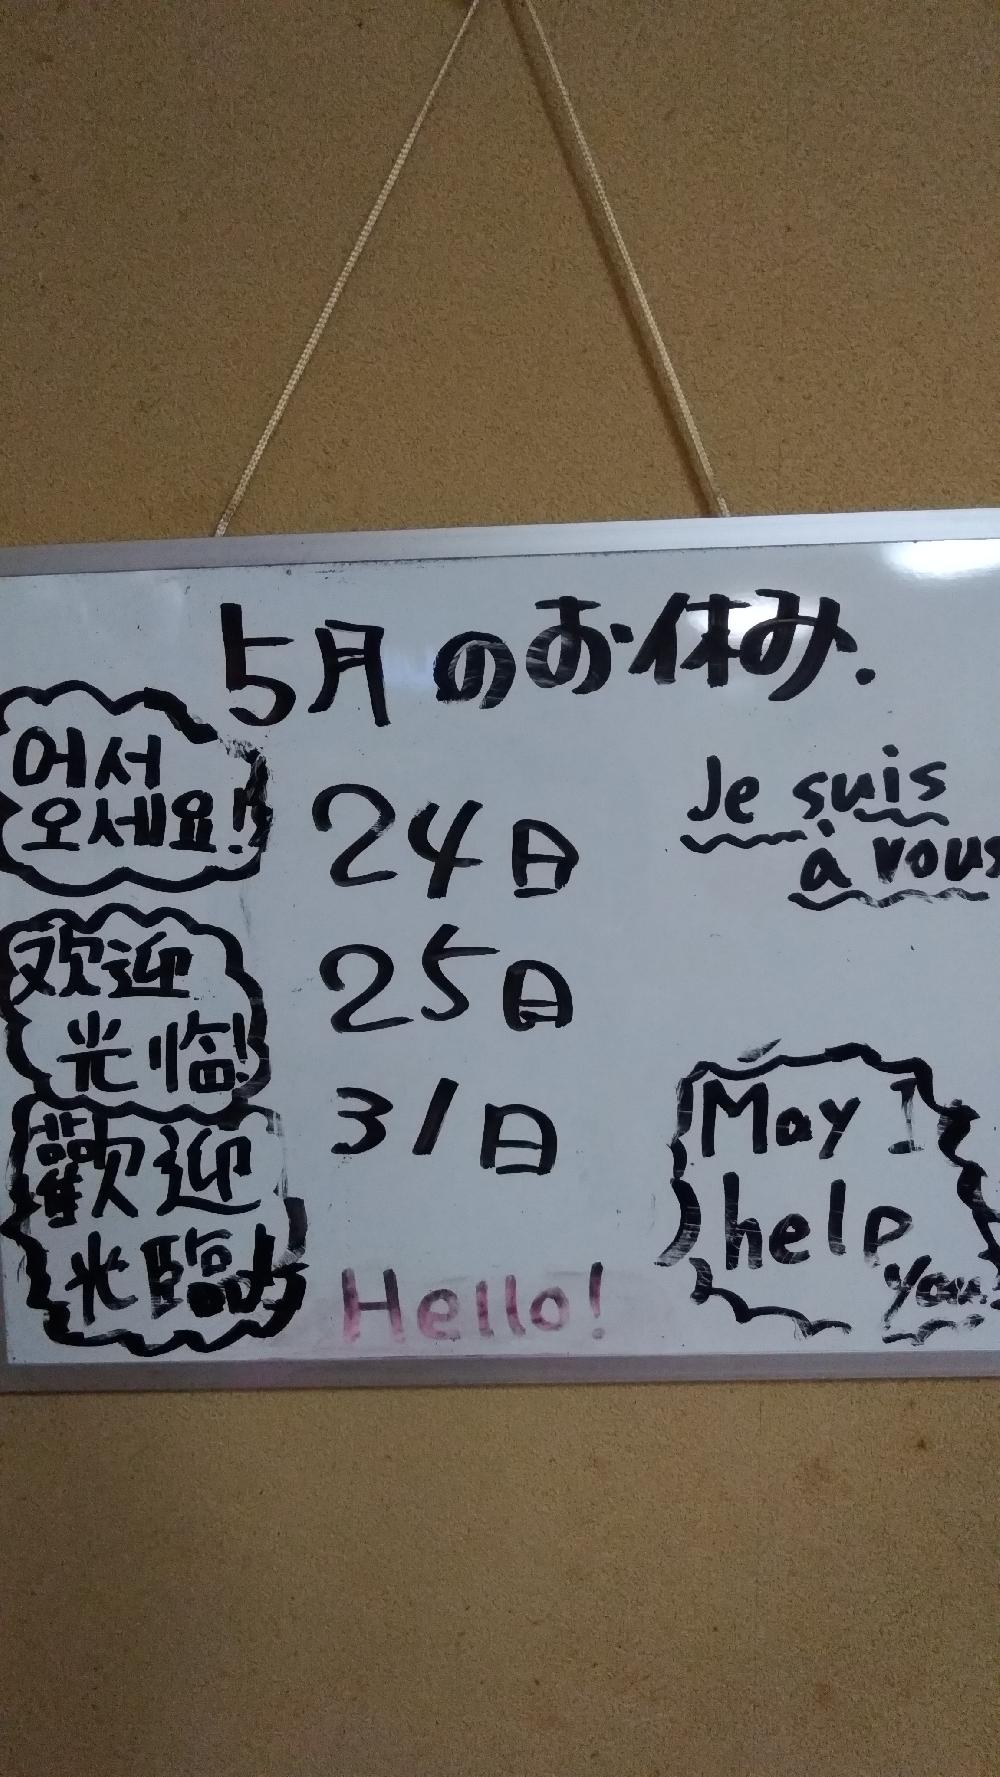 5月のお休み.
어서
오세요!
24日
Je suis
à vous
欢迎
光临!
25日
31日
歡迎
光臨!
May I
help
you
Hello!